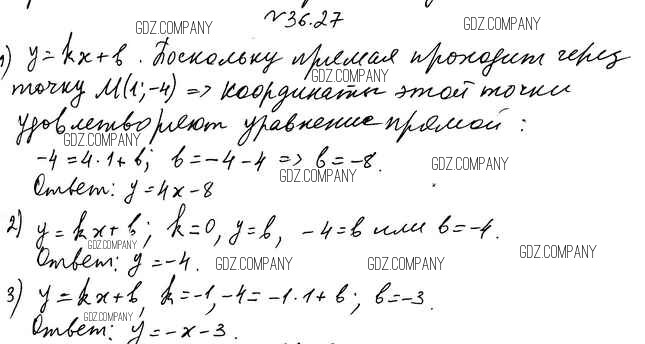 №36.27
GDZ.COMPANY GDZ.COMPANY
1) y=kx+b. Поскольку прямая проходит через
GDZ.COMPANY
точку M(1;-4) => координаты этой точки
удовлетворяют уравнение прямой:
GDZ.COMPANY
-4=4·1+b; b=-4-4 => b=-8.
GDZ.COMPANY GDZ.COMPANY
Ответ: y=4x-8
2) y=kx+b; k=0, y=b, -4=b или b=-4.
GDZ.COMPANY GDZ.COMPANY
Ответ: y=-4.
GDZ.COMPANY GDZ.COMPANY
3) y=kx+b, k=-1, -4=-1·1+b; b=-3.
GDZ.COMPANY
Ответ: y=-x-3.